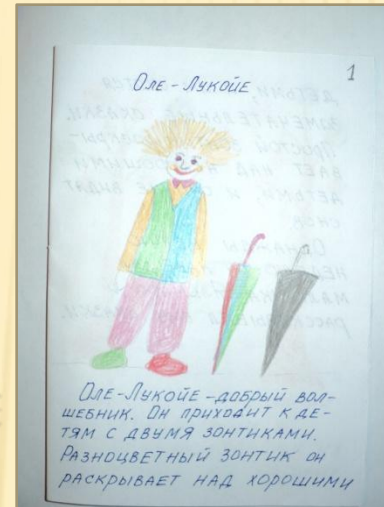 1
Оле-Лукойе
Оле-Лукойе - добрый вол-
шебник. Он приходит к де-
тям с двумя зонтиками.
Разноцветный зонтик он
раскрывает над хорошими